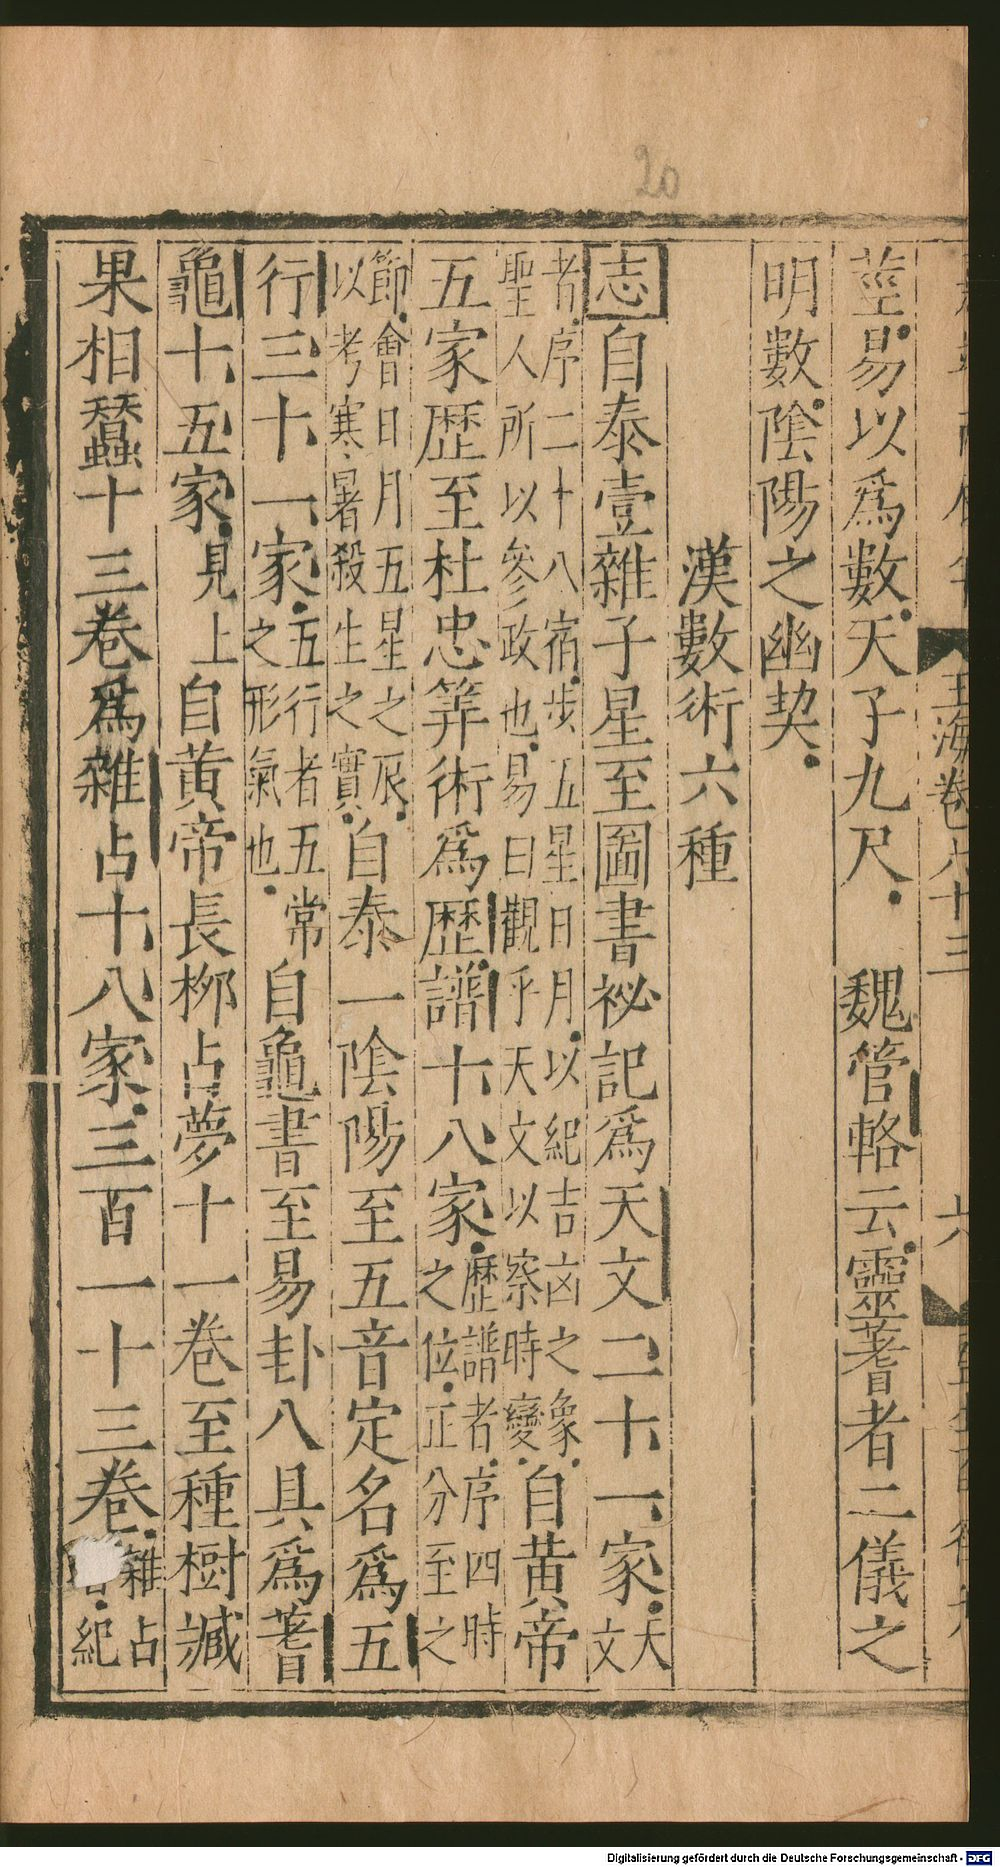 20
玉海卷八十三
六
莖易以爲數天子九尺 魏管輅云靈蓍者二儀之
明數陰陽之幽契
漢數術六種
志自泰壹雜子星至圖書祕記爲天文二十一家天文
者序二十八宿步五星日月以紀吉凶之象
聖人所以參政也易曰觀乎天文以察時變自黃帝
五家歷至杜忠筭術爲歷譜十八家歷譜者序四時之位正分至之
節會日月五星之辰
以考寒暑殺生之實自泰一陰陽至五音定名爲五
行三十一家五行者五常之形氣也自龜書至易卦八具爲蓍
龜十五家見上自黃帝長柳占夢十一卷至種樹臧
果相蠶十三卷爲雜占十八家三百一十三卷雜占紀
Digitalisierung gefördert durch die Deutsche Forschungsgemeinschaft - DFG